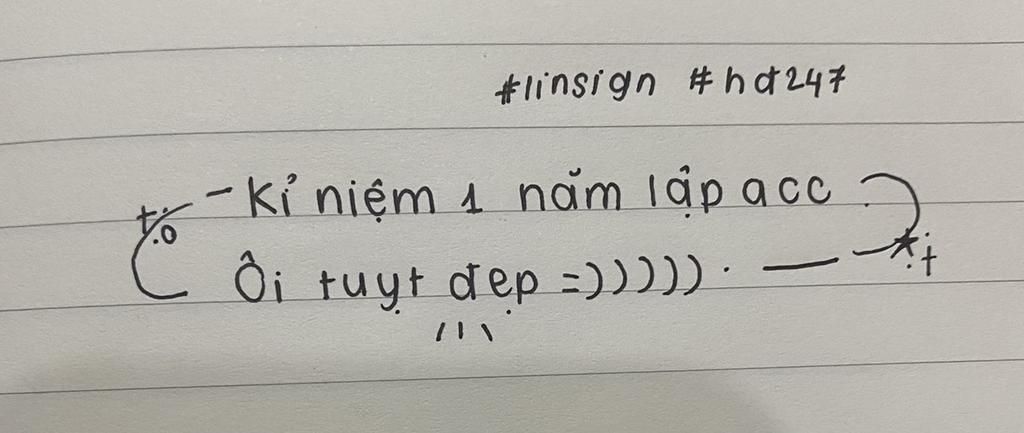 #linsign #hd247
- Kỉ niệm 1 năm lập acc
Ôi tuyẹt đẹp =))))).